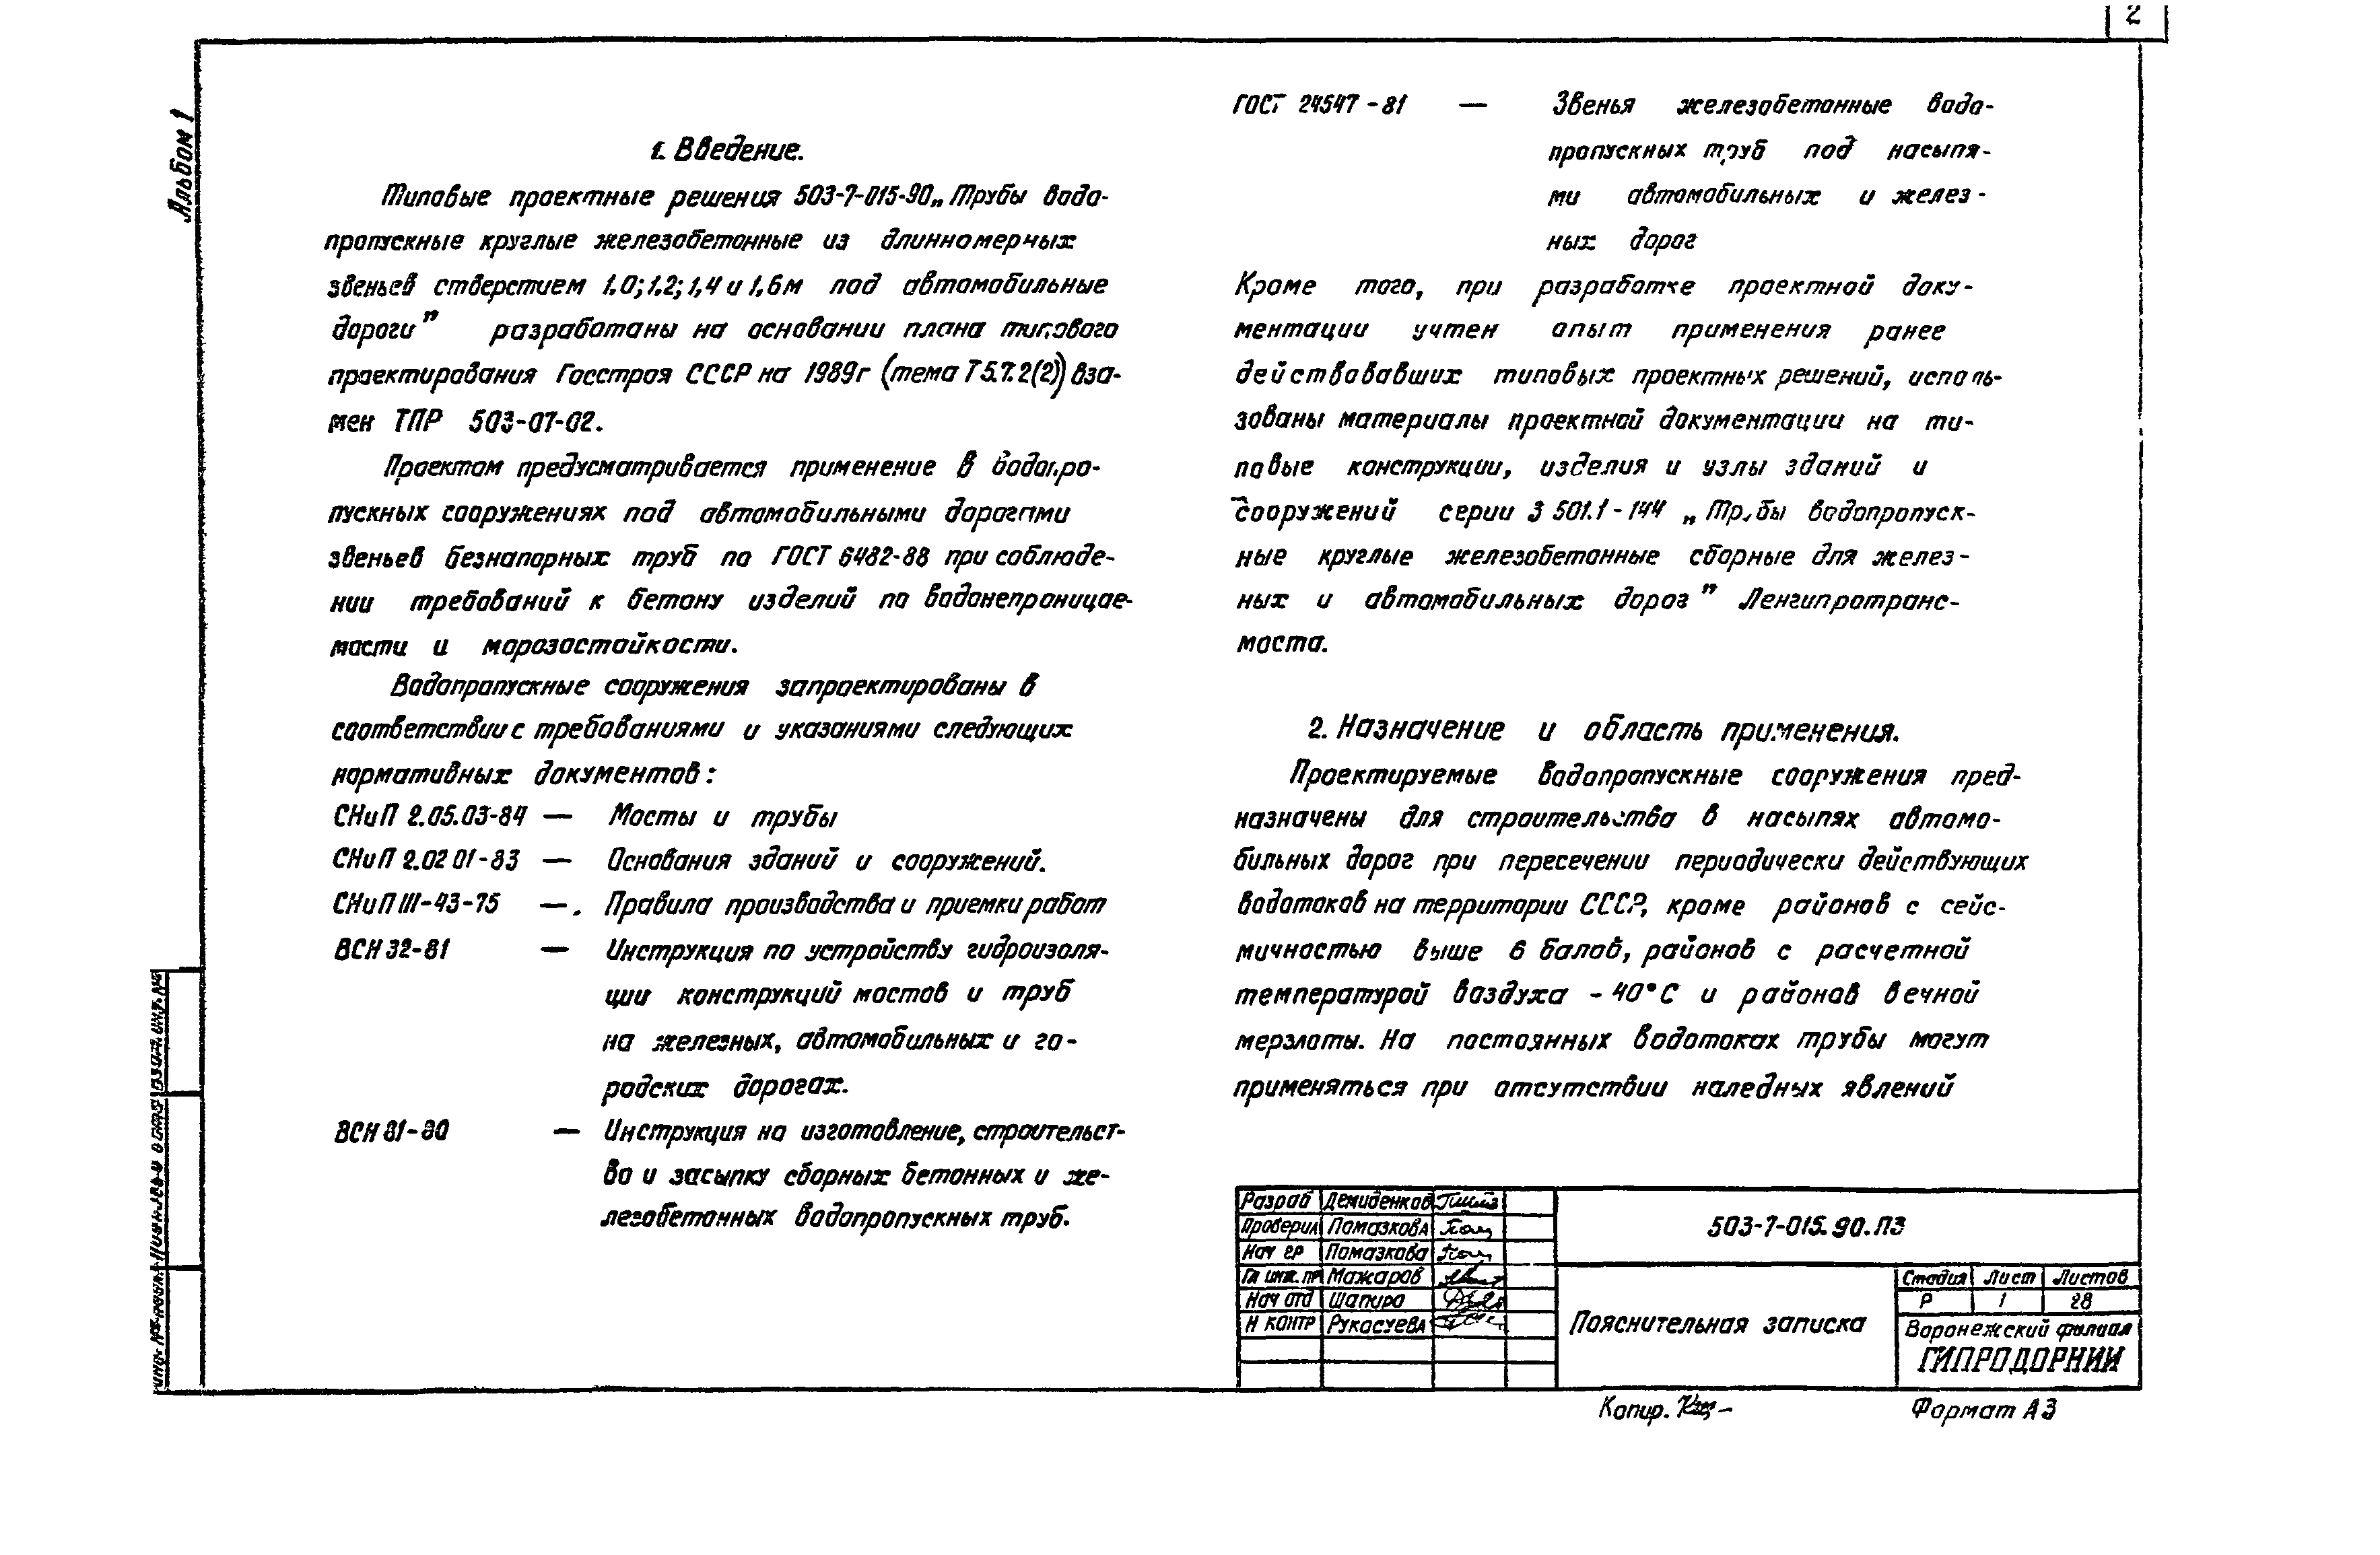 2
Альбом 1
1. Введение.
Типовые проектные решения 503-7-015-90 „Трубы водо-
пропускные круглые железобетонные из длинномерных
звеньев отверстием 1.0; 1.2; 1,4 и 1,6м под автомобильные
дороги" разработаны на основании плана типового
проектирования Госстроя СССР на 1989г (тема Т5.7.2(2)) вза-
мен ТПР 503-07-02.
Проектом предусматривается применение в водопро-
пускных сооружениях под автомобильными дорогами
звеньев безнапорных труб по ГОСТ 6482-88 при соблюде-
нии требований к бетону изделий по водонепроницае-
мости и морозостойкости.
Водопропускные сооружения запроектированы в
соответствии с требованиями и указаниями следующих
нормативных документов:
СНиП 2.05.03-84 — Мосты и трубы
СНиП 2.02 01-83 — Основания зданий и сооружений.
СНиП III-43-75 —. Правила производства и приемки работ
ВСН 32-81 — Инструкция по устройству гидроизоля-
ции конструкций мостов и труб
на железных, автомобильных и го-
родских дорогах.
ВСН 81-80 — Инструкция на изготовление, строительст-
во и засыпку сборных бетонных и же-
лезобетонных водопропускных труб.
ГОСТ 24547-81 — Звенья железобетонные водо-
пропускных труб под насыпя-
ми автомобильных и желез-
ных дорог
Кроме того, при разработке проектной доку-
ментации учтен опыт применения ранее
действовавших типовых проектных решений, исполь-
зованы материалы проектной документации на ти-
повые конструкции, изделия и узлы зданий и
сооружений серии 3 501.1-144 „Трубы водопропуск-
ные круглые железобетонные сборные для желез-
ных и автомобильных дорог" Ленгипротранс-
моста.
2. Назначение и область применения.
Проектируемые водопропускные сооружения пред-
назначены для строительства в насыпях автомо-
бильных дорог при пересечении периодически действующих
водотоков на территории СССР, кроме районов с сейс-
мичностью выше 6 балов, районов с расчетной
температурой воздуха -40°С и районов вечной
мерзлоты. На постоянных водотоках трубы могут
применяться при отсутствии наледных явлений
Разраб Демиденков
Проверил Помазкова
Нач гр Помазкова
Гл инж. пр Мажаров
Нач отд Шапиро
Н контр Рукасуева
503-7-015.90.ПЗ
Пояснительная записка
Стадия Лист Листов
Р 1 28
Воронежский филиал
ГИПРОДОРНИИ
Копир.
Формат А3